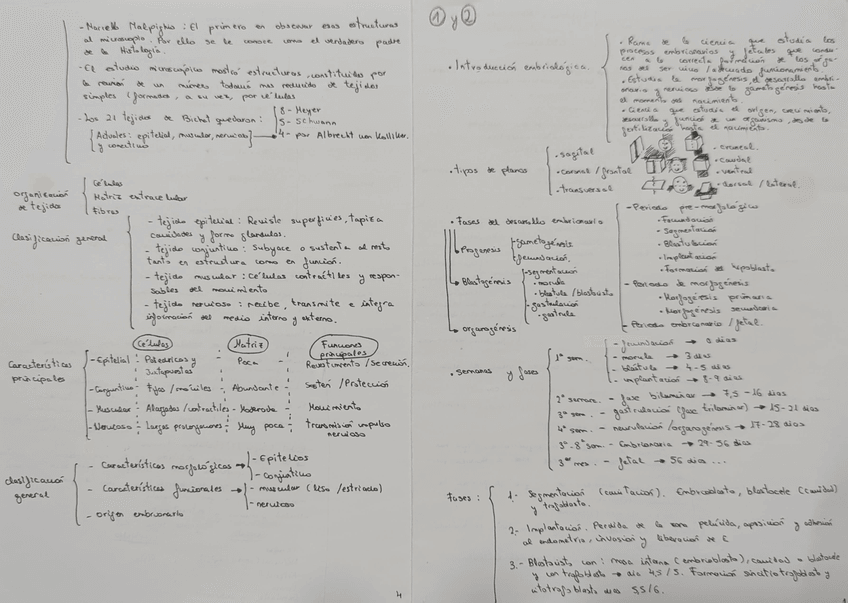 - Marcello Malpighio: El primero en observar esas estructuras
al microscopio. Por ello se le conoce como el verdadero padre
de la Histología.
- El estudio microscópico mostró estructuras, constituidas por
la reunión de un número todavía más reducido de tejidos
simples (formados, a su vez, por células
- Los 21 tejidos de Bichat quedaron:
8 - Meyer
5 - Schwann
4 - por Albrecht von Kölliker.
Actuales: epitelial, muscular, nervioso
y conectivo
organización
de tejidos
Células
Matriz extracelular
Fibras
Clasificación general
- tejido epitelial: Reviste superficies, tapiza
cavidades y forma glándulas.
- tejido conjuntivo: Subyace o sustenta al resto
tanto en estructura como en función.
- tejido muscular: Células contráctiles y respon-
sables del movimiento
- tejido nervioso: recibe, transmite e integra
información del medio interno y externo.
Características
principales
Células Matriz Funciones
principales
- Epitelial Poliédricas y
Yuxtapuestas Poca Revestimiento / Secreción.
- Conjuntivo Fijas / móviles Abundante Sostén / Protección
- Muscular Alargadas / contráctiles Moderada Movimiento
- Nervioso Largas prolongaciones Muy poca Transmisión impulso
nervioso
Clasificación
general
- Características morfológicas
- Epitelios
- Conjuntivo
- Características funcionales
- muscular (liso / estriado)
- nervioso
- origen embrionario
4
1 y 2
• Introducción embriológica
• Rama de la ciencia que estudia los
procesos embrionarios y fetales que conduc-
cen a la correcta formación de los órga-
nos del ser vivo / adecuado funcionamiento.
• Estudia la morfogénesis, el desarrollo embri-
onario y nervioso desde la gametogénesis hasta
el momento del nacimiento.
• Ciencia que estudia el origen, crecimiento,
desarrollo y función de un organismo, desde la
fertilización hasta el nacimiento.
• Tipos de planos
• sagital
• coronal / frontal
• transversal
• craneal.
• caudal
• ventral
• dorsal / lateral.
• Fases del desarrollo embrionario
Progénesis
gametogénesis
fecundación.
Blastogénesis
• segmentación
• morula
• blastula / blastocisto
• gastrulación
• gastrula
organogénesis
- Periodo pre-morfológico
• Fecundación
• Segmentación
• Blastulación
• Implantación
• Formación del hipoblasto
- Periodo de morfogénesis
• Morfogénesis primaria
• Morfogénesis secundaria
- Periodo embrionario / fetal.
• Semanas y fases
1ª sem.
- fecundación → 0 días
- morula → 3 días
- blástula → 4-5 días
- implantación → 8-9 días
2ª semana. - fase bilaminar → 7,5 - 16 días
3ª sem. - gastrulación (fase trilaminar) → 15-21 días
4ª sem. - neurulación / organogénesis → 17-28 días
3ª-8ª sem. - Embrionaria → 29-56 días
3er mes. - fetal → 56 días ...
Fases:
1.- Segmentación (cavitación). Embrioblasto, blastocele (cavidad)
y trofoblasto.
2.- Implantación. Perdida de la zona pelúcida, aposición y adhesión
al endometrio, invasión y liberación de E
3.- Blastocisto con: masa interna (embrioblasto), cavidad o blastocele
y un trofoblasto → día 4,5 / 5. Formación sincitiotrofoblasto y
citotrofoblasto días 5,5/6.